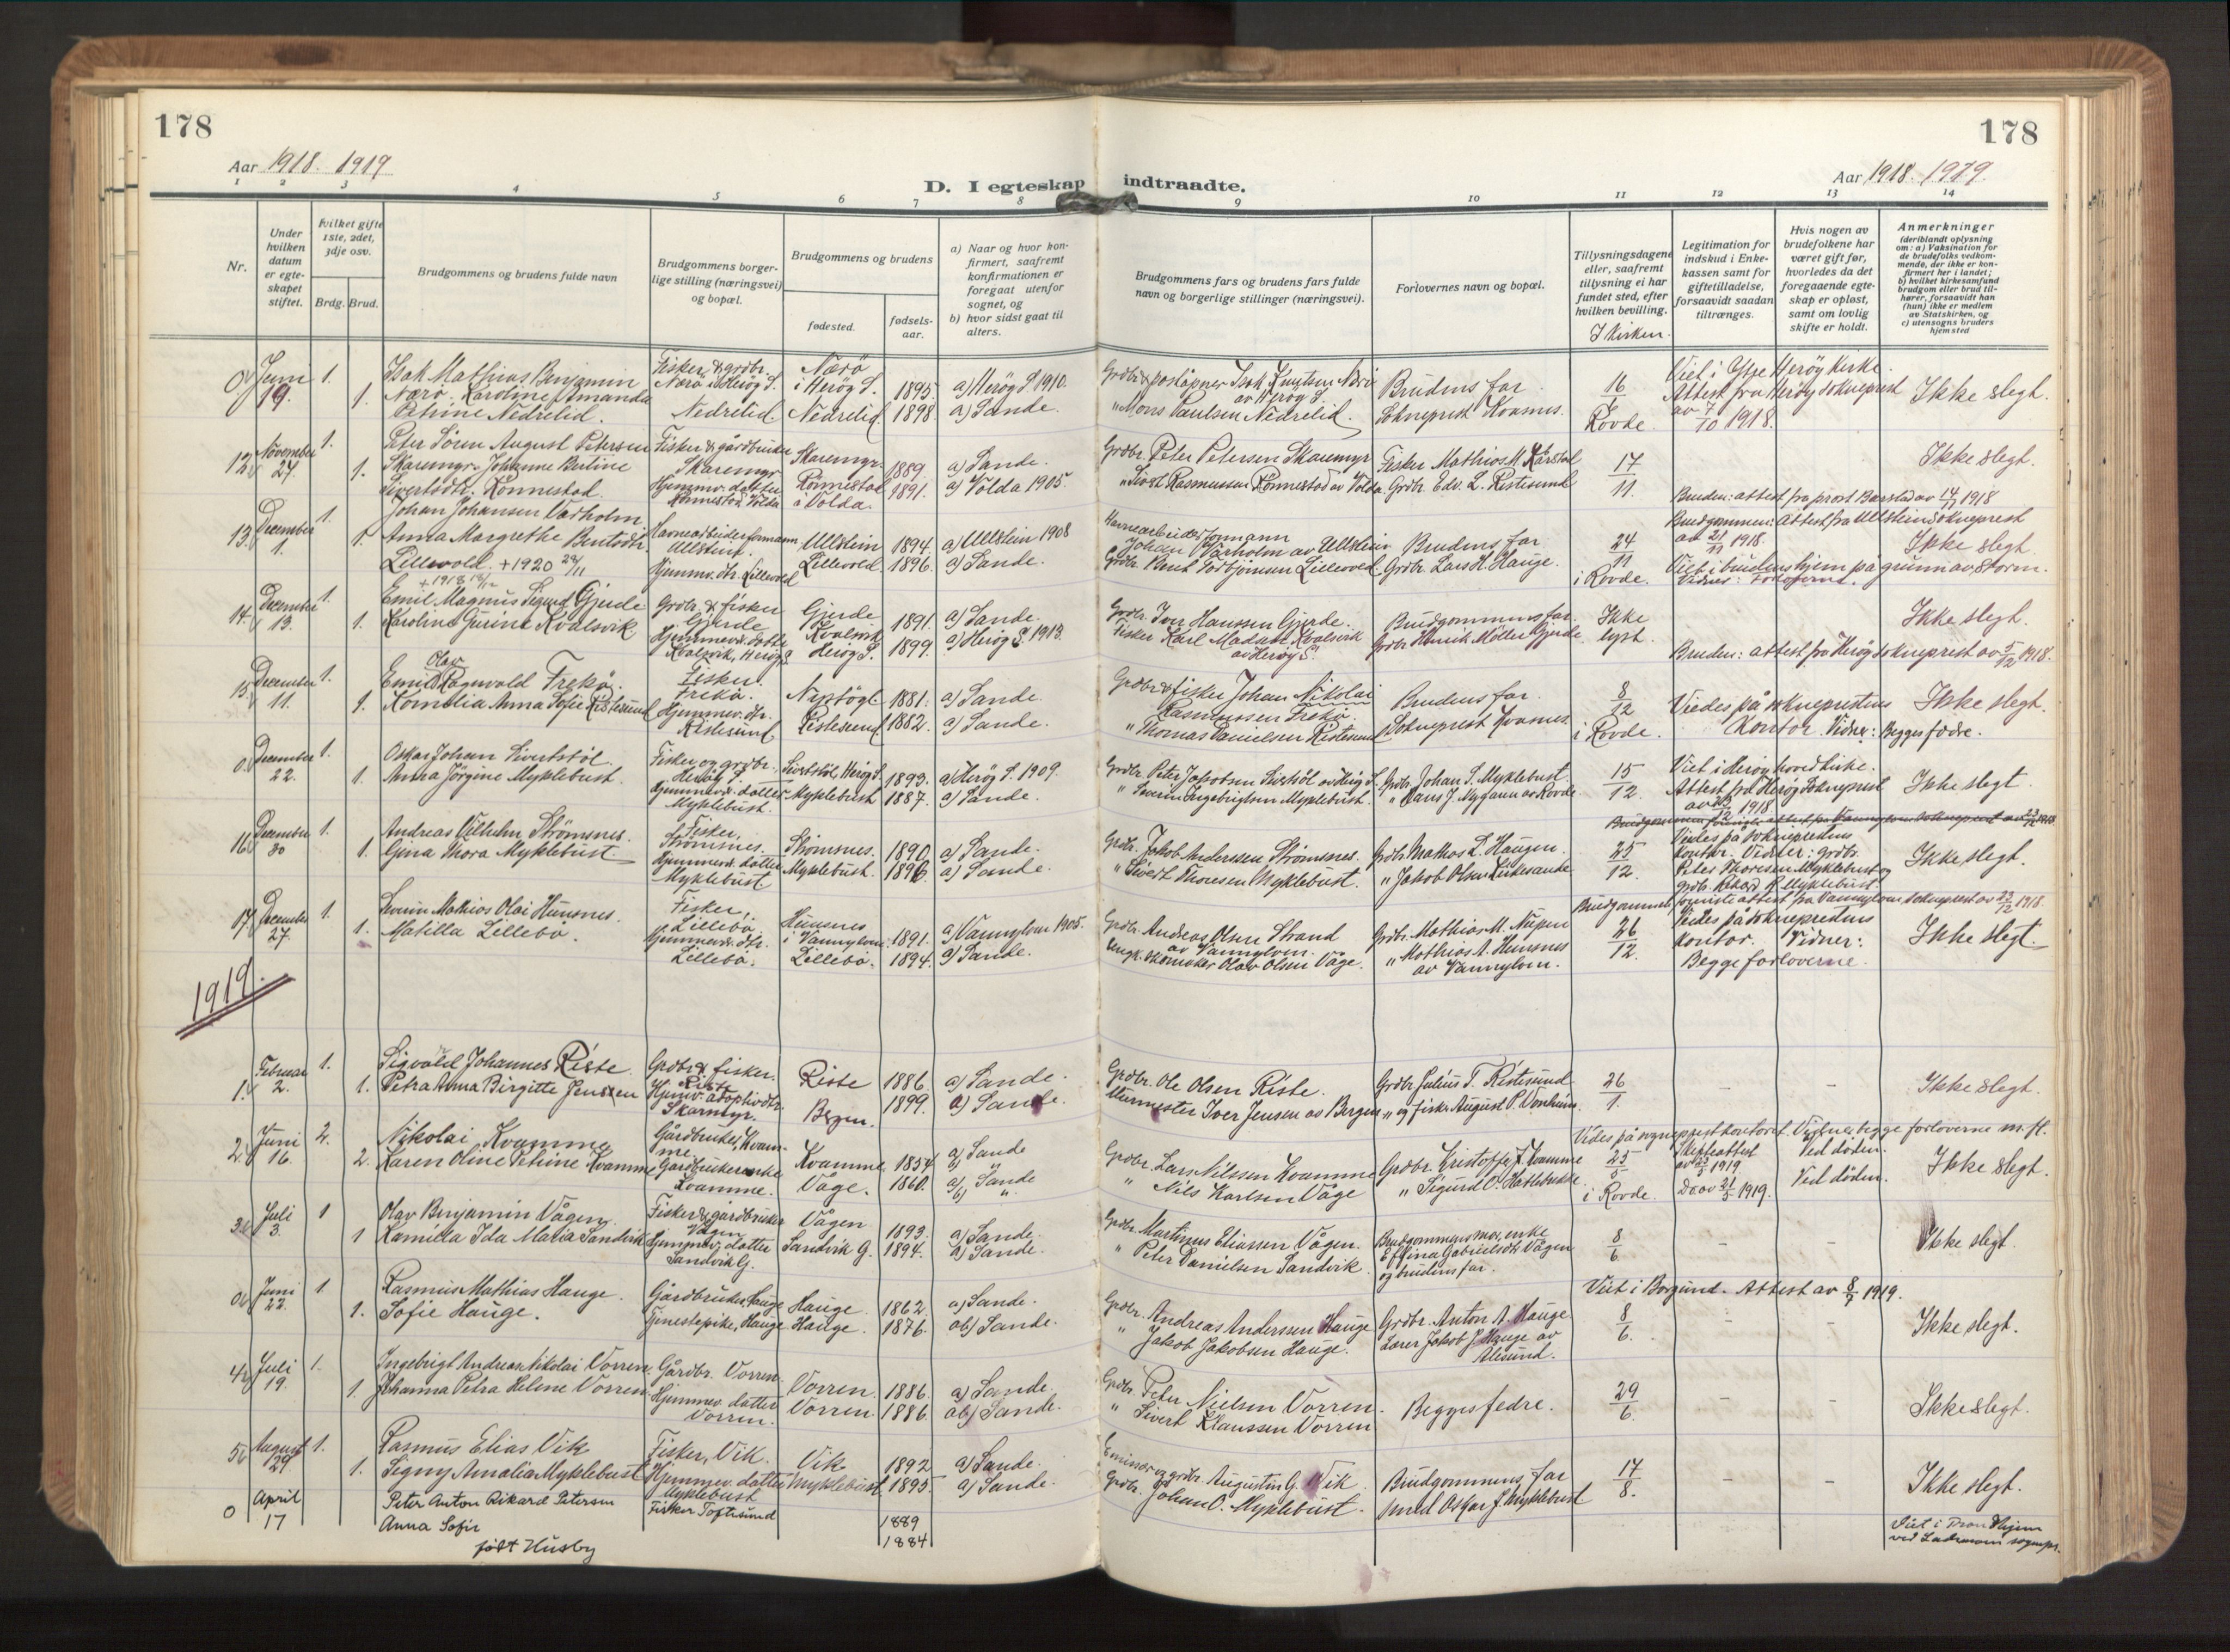 178
178
Aar 1918. 1919
D. I egteskap indtraadte.
Aar 1918. 1919.
1 2 3 4 5 6 7 8 9 10 11 12 13 14
Nr.
Under hvilken datum er egteskapet stiftet.
Hvilket gifte 1ste, 2det, 3dje osv.
Brdg. Brud.
Brudgommens og brudens fulde navn
Brudgommens borgerlige stilling (næringsvei) og bopæl.
Brudgommens og brudens
fødested.
fødselsaar.
a) Naar og hvor konfirmert, saafremt konfirmationen er foregaat utenfor sognet, og
b) hvor sidst gaat til alters.
Brudgommens fars og brudens fars fulde navn og borgerlige stillinger (næringsvei).
Forlovernes navn og bopæl.
Tillysningsdagene eller, saafremt tillysning ei har fundet sted, efter hvilken bevilling.
I kirken.
Legitimation for indskud i Enkekassen samt for giftetilladelse, forsaavidt saadan tiltrænges.
Hvis nogen av brudefolkene har været gift før, hvorledes da det foregaaende egteskap er opløst, samt om lovlig skifte er holdt.
Anmerkninger
(deriblandt oplysning om: a) Vaksination for de brudefolks vedkommende, der ikke er konfirmert her i landet; b) hvilket kirkesamfund brudgom eller brud tilhører, forsaavidt han (hun) ikke er medlem av Statskirken, og c) utensogns bruders hjemsted
0 Juni 19. 1. 1.
Isak Mathias Benjamin
Nærø. Karoline Amanda
Petrine Nedrelid.
Fisker & grdbr.
Nærø i Herøy S.
Nedrelid
Nærø
i Herøy S. 1895. a) Herøy S 1910.
Nedrelid 1898 a) Sande.
Grdbr. & poståpner Isak Knutsen Nærø
av Herøy S.
" Mons Paulsen Nedrelid.
Brudens far.
Sokneprest Kvamus.
16/6
Rovde.
Viet i Ytre Herøy Kirke.
Attest fra Herøy Sokneprest
av 7/10 1918.
Ikke slegt.
12 November 27 1. 1.
Peter Søren August Petersen
Skaremyr. Johanne Bertine
Sivertsdtr. Rønnestad.
Fisker & gårdbruker
Skaremyr
Hjemmev. datter
Rønnestad, Volda
Skaremyr. 1889. a) Sande.
Rønnestad
i Volda. 1891. a) Volda 1905.
Grdbr. Peter Petersen Skaremyr
" Sivert Rasmussen Rønnestad av Volda.
Fisker Mathias M. Kårstad
Grdbr. Edv. L. Ristesund
17/11.
Bruden: attest fra prost Barstad av 14/11 1918
Ikke slegt.
13. December 1. 1. 1.
Johan Johansen Varholm
Anna Margrethe Bentsdtr.
Lillevold. + 1920 29/11
Havnearbeiderformann,
Ullstein.
Hjemmev. dtr. Lillevold
Ullstein 1894. a) Ullstein 1908
Lillevold 1896. a) Sande.
Havnearbeiderformann
Johan Varholm av Ullstein
Grdbr. Bent Torbjørnsen Lillevold
Brudens far
Grdbr. Lars H. Hauge.
24/11
i Rovde.
Brudgommen: Attest fra Ullstein Sokneprest
av 21/11 1918.
Viet i brudens hjem på grunn av storm.
Vidner: Forloverne.
Ikke slegt.
14. December 13. 1. 1.
+ 1918 19/12
Emil Magnus Sigurd Gjerde
Karoline Gurine Kvalsvik
Grdbr. & fisker
Gjerde
Hjemmev. datter
Kvalsvik, Herøy S.
Gjerde 1891. a) Sande.
Kvalsvik
Herøy S. 1899. a) Herøy S. 1913.
Grdbr. Iver Hanssen Gjerde.
Fisker Karl Madsen Kvalsvik
av Herøy S.
Brudgommens far
Grdbr. Henrik Møller Gjerde
Ikke
lyst.
Bruden: attest fra Herøy Sokneprest av 5/12 1918.
Ikke slegt.
15. December 11. 1. 1.
Olav
Emil Ragnvald Frekø.
Kornelia Anna Sofie Ristesund
Fisker.
Frekø.
Hjemmev. dtr.
Ristesund
1881. a) Sande.
Ristesund 1882. a) Sande.
Grdbr. & fisker Johan Nikolai
Rasmussen Frekø.
" Thomas Danielsen Ristesund
Brudens far.
Sokneprest Kvamus.
8/12
i Rovde.
Viedes på soknepresten
Kontor. Vidner: Begges fædre.
Ikke slegt.
0. December 22. 1. 1.
Oskar Johan Sivertstøl
Anna Jørgine Myklebust.
Fisker og grdbr.
Herøy S.
Hjemmev. datter
Myklebust.
Sivertstøl, Herøy S. 1893. a) Herøy S. 1909.
Myklebust 1887. a) Sande.
Grdbr. Peter Jakobsen Sivertstøl av Herøy S.
" Severin Ingebrigtsen Myklebust.
Grdbr. Johan S. Myklebust.
15/12.
Viet i Herøy hovedkirke.
Attest fra Herøy Sokneprest
Ikke slegt
16. December 30 1. 1.
Andreas Vilhelm Strømsnes.
Gina Thora Myklebust
Fisker,
Strømsnes.
Hjemmev. datter
Myklebust
Strømsnes. 1890. a) Sande.
Myklebust. 1896. a) Sande.
Grdbr. Jakob Anderssen Strømsnes.
" Sivert Thoresen Myklebust.
Grdbr. Mathias L. Haugen.
" Jakob Olsen Likkesande
25/12.
Viedes på sokneprestens
kontor. Vidner: Grdbr.
Peter Thoresen Myklebust og
Grdbr. Rikard R. Myklebust.
Ikke slegt.
17. December 27. 1. 1.
Severin Mathias Olai Hunsnes.
Matilla Lillebø.
Fisker,
Lillebø.
Hjemmev. dtr.
Lillebø.
Hunsnes
i Vannylven 1891. a) Vannylven 1905.
Lillebø. 1894. a) Sande.
Grdbr. Andreas Olsen Strand
av Vannylven.
Ungk. skomaker Olav Olsen Våge.
Grdbr. Mathias M. Nupen
" Mathias A. Hunsnes
av Vannylven.
26/12
Brudgommen foreviste attest fra Vannylven Sokneprest av 23/12 1918.
Viedes på sokneprestens
kontor. Vidner:
Begge forloverne.
Ikke slegt.
1919.
1. Februar 2. 1. 1.
Sigvald Johannes Riste
Petra Anna Birgitte Jensen
Grdbr. & fisker.
Riste
Hjemv. adoptivdtr.
Skarmyr.
Riste 1886. a) Sande.
Bergen. 1899. a) Sande.
Grdbr. Ole Olsen Riste.
Murmester Iver Jensen av Bergen
Grdbr. Julius T. Ristesund
" og fisker August P. Donheim.
26/1.
–
–
Ikke slegt.
2. Juni 16. 2. 2.
Nikolai Kvamme
Karen Oline Petrine Kvamme
Gårdbruker, Kvamme.
Gårdbrukerenke
Kvamme.
Kvamme 1854 a) Sande
b) "
Våge. 1860. a) Sande
b) "
Grdbr. Lars Nilssen Kvamme
" Nils Karlsen Våge
Grdbr. Kristoffer J. Kvamme
" Sigurd O. Hatlebrekke.
25/5
i Rovde.
Viedes på sogneprestkontoret. Vidner begge forloverne m. fl.
Skifteattest
1919
Do. av 21/5 1919.
Ved døden.
Ved døden.
Ikke slegt.
3. Juli 3. 1 1
Olav Benjamin Vågen
Kamilla Ida Maria Sandvik
Fisker & gårdbruker
Vågen
Hjemmev. datter
Sandvik G.
Vågen 1893. a) Sande.
Sandvik G. 1894. a) Sande.
Grdbr. Martinus Eliassen Vågen.
" Peter Danielsen Sandvik
Brudgommens mor, enke
Effina Gabrielsdtr. Vågen
og brudens far.
8/6
–
–
Ikke slegt.
0 Juni 22. 1 1.
Rasmus Mathias Hauge.
Sofie Hauge.
Gårdbruker, Hauge
Tjenestepike, Hauge
Hauge 1862. a) Sande.
Hauge. 1876. ab) Sande.
Grdbr. Andreas Anderssen Hauge
" Jakob Jakobsen Hauge.
Grdbr. Anton A. Hauge
Lærer Jakob J. Hauge av
Ålesund.
8/6.
Viet i Borgund. Attest av 8/7 1919.
Ikke slegt.
4 Juli 19. 1. 1.
Ingebrigt Andreas Nikolai Vorren
Johanna Petra Helene Vorren
Gårdbr. Vorren.
Hjemmev. datter
Vorren.
Vorren. 1886. a) Sande.
Vorren 1886. ab) Sande.
Grdbr. Peter Nielsen Vorren.
" Sivert Klaussen Vorren
Begges fedre.
29/6.
–
–
Ikke slegt.
5 August 29 1. 1.
Rasmus Elias Vik
Signy Amalia Myklebust
Fisker, Vik.
Hjemmev. datter
Myklebust
Vik 1892 a) Sande.
Myklebust 1895. a) Sande.
Seminar og grdbr. Augustin G. Vik
Grdbr. Johan O. Myklebust.
Brudgommens far
Smed Oskar J. Myklebust
17/8.
–
–
Ikke slegt.
0 April 17
Peter Anton Rikard Petersen
Anna Sofie
født Husby
Fisker Toftesund
1889
1884
Viet i Trondhjem
ved Lademoen sognepr.